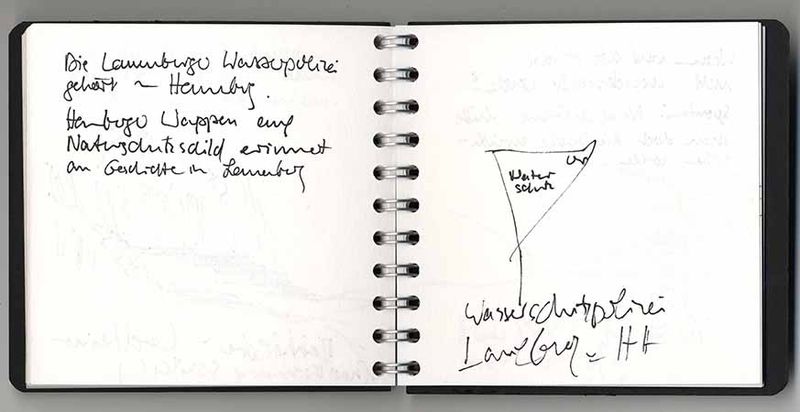 Die Lauenburger Wasserpolizei
gehört zu Hamburg.
Hamburger Wappen auf
Naturschutzschild erinnert
an Geschichte in Lauenburg
Natur
schutz
Wasserschutzpolizei
Lauenburg = HH